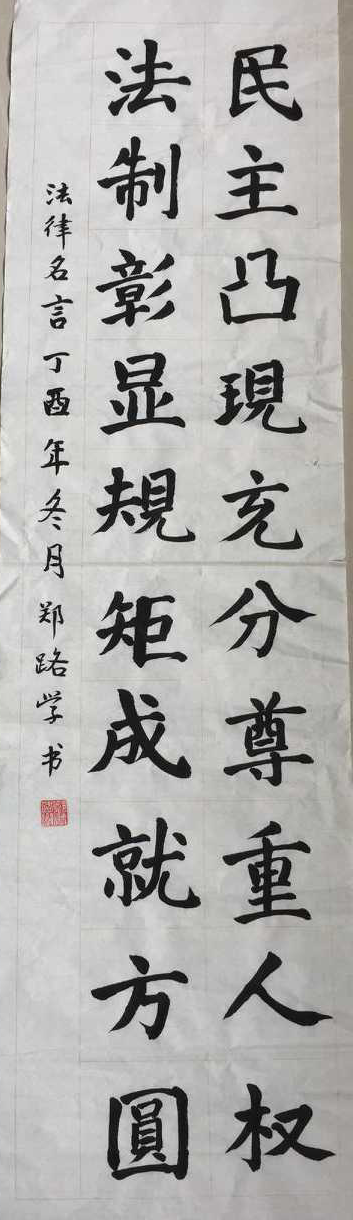 民主凸現充分尊重人权
法制彰显規矩成就方圓
法律名言丁酉年冬月郑路学书